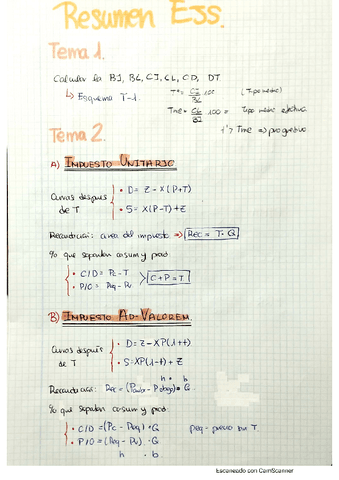 Resumen EJS.
Tema 1.
Calcular la BI, BL, CI, CL, CD, DT
↳ Esquema T-1.
T* = CI/BL · 100 (Tipo medio)
Tme = CL/BI · 100 = Tipo medio efectivo
t' > Tme ⇒ progresivo
Tema 2.
A) IMPUESTO UNITARIO
Curvas después de T
• D = Z - X(P+T)
• S = X(P-T) + Z
Recaudación: area del impuesto → Rec = T · Q
% que soportan consum y prod
• C/D = Pc - T
• P/O = Peq - Pv
C + P = T
B) IMPUESTO AD-VALOREM.
Curvas después de T
• D = Z - XP(1+t)
• S = XP(1-t) + Z
Recaudación: Rec = · Q
h b
% que soportan consum y prod.
• C/D = (Pc - Peq) · Q
• P/O = (Peq - Pv) · Q
h · b
Peq - precio sin T.
Escaneado con CamScanner